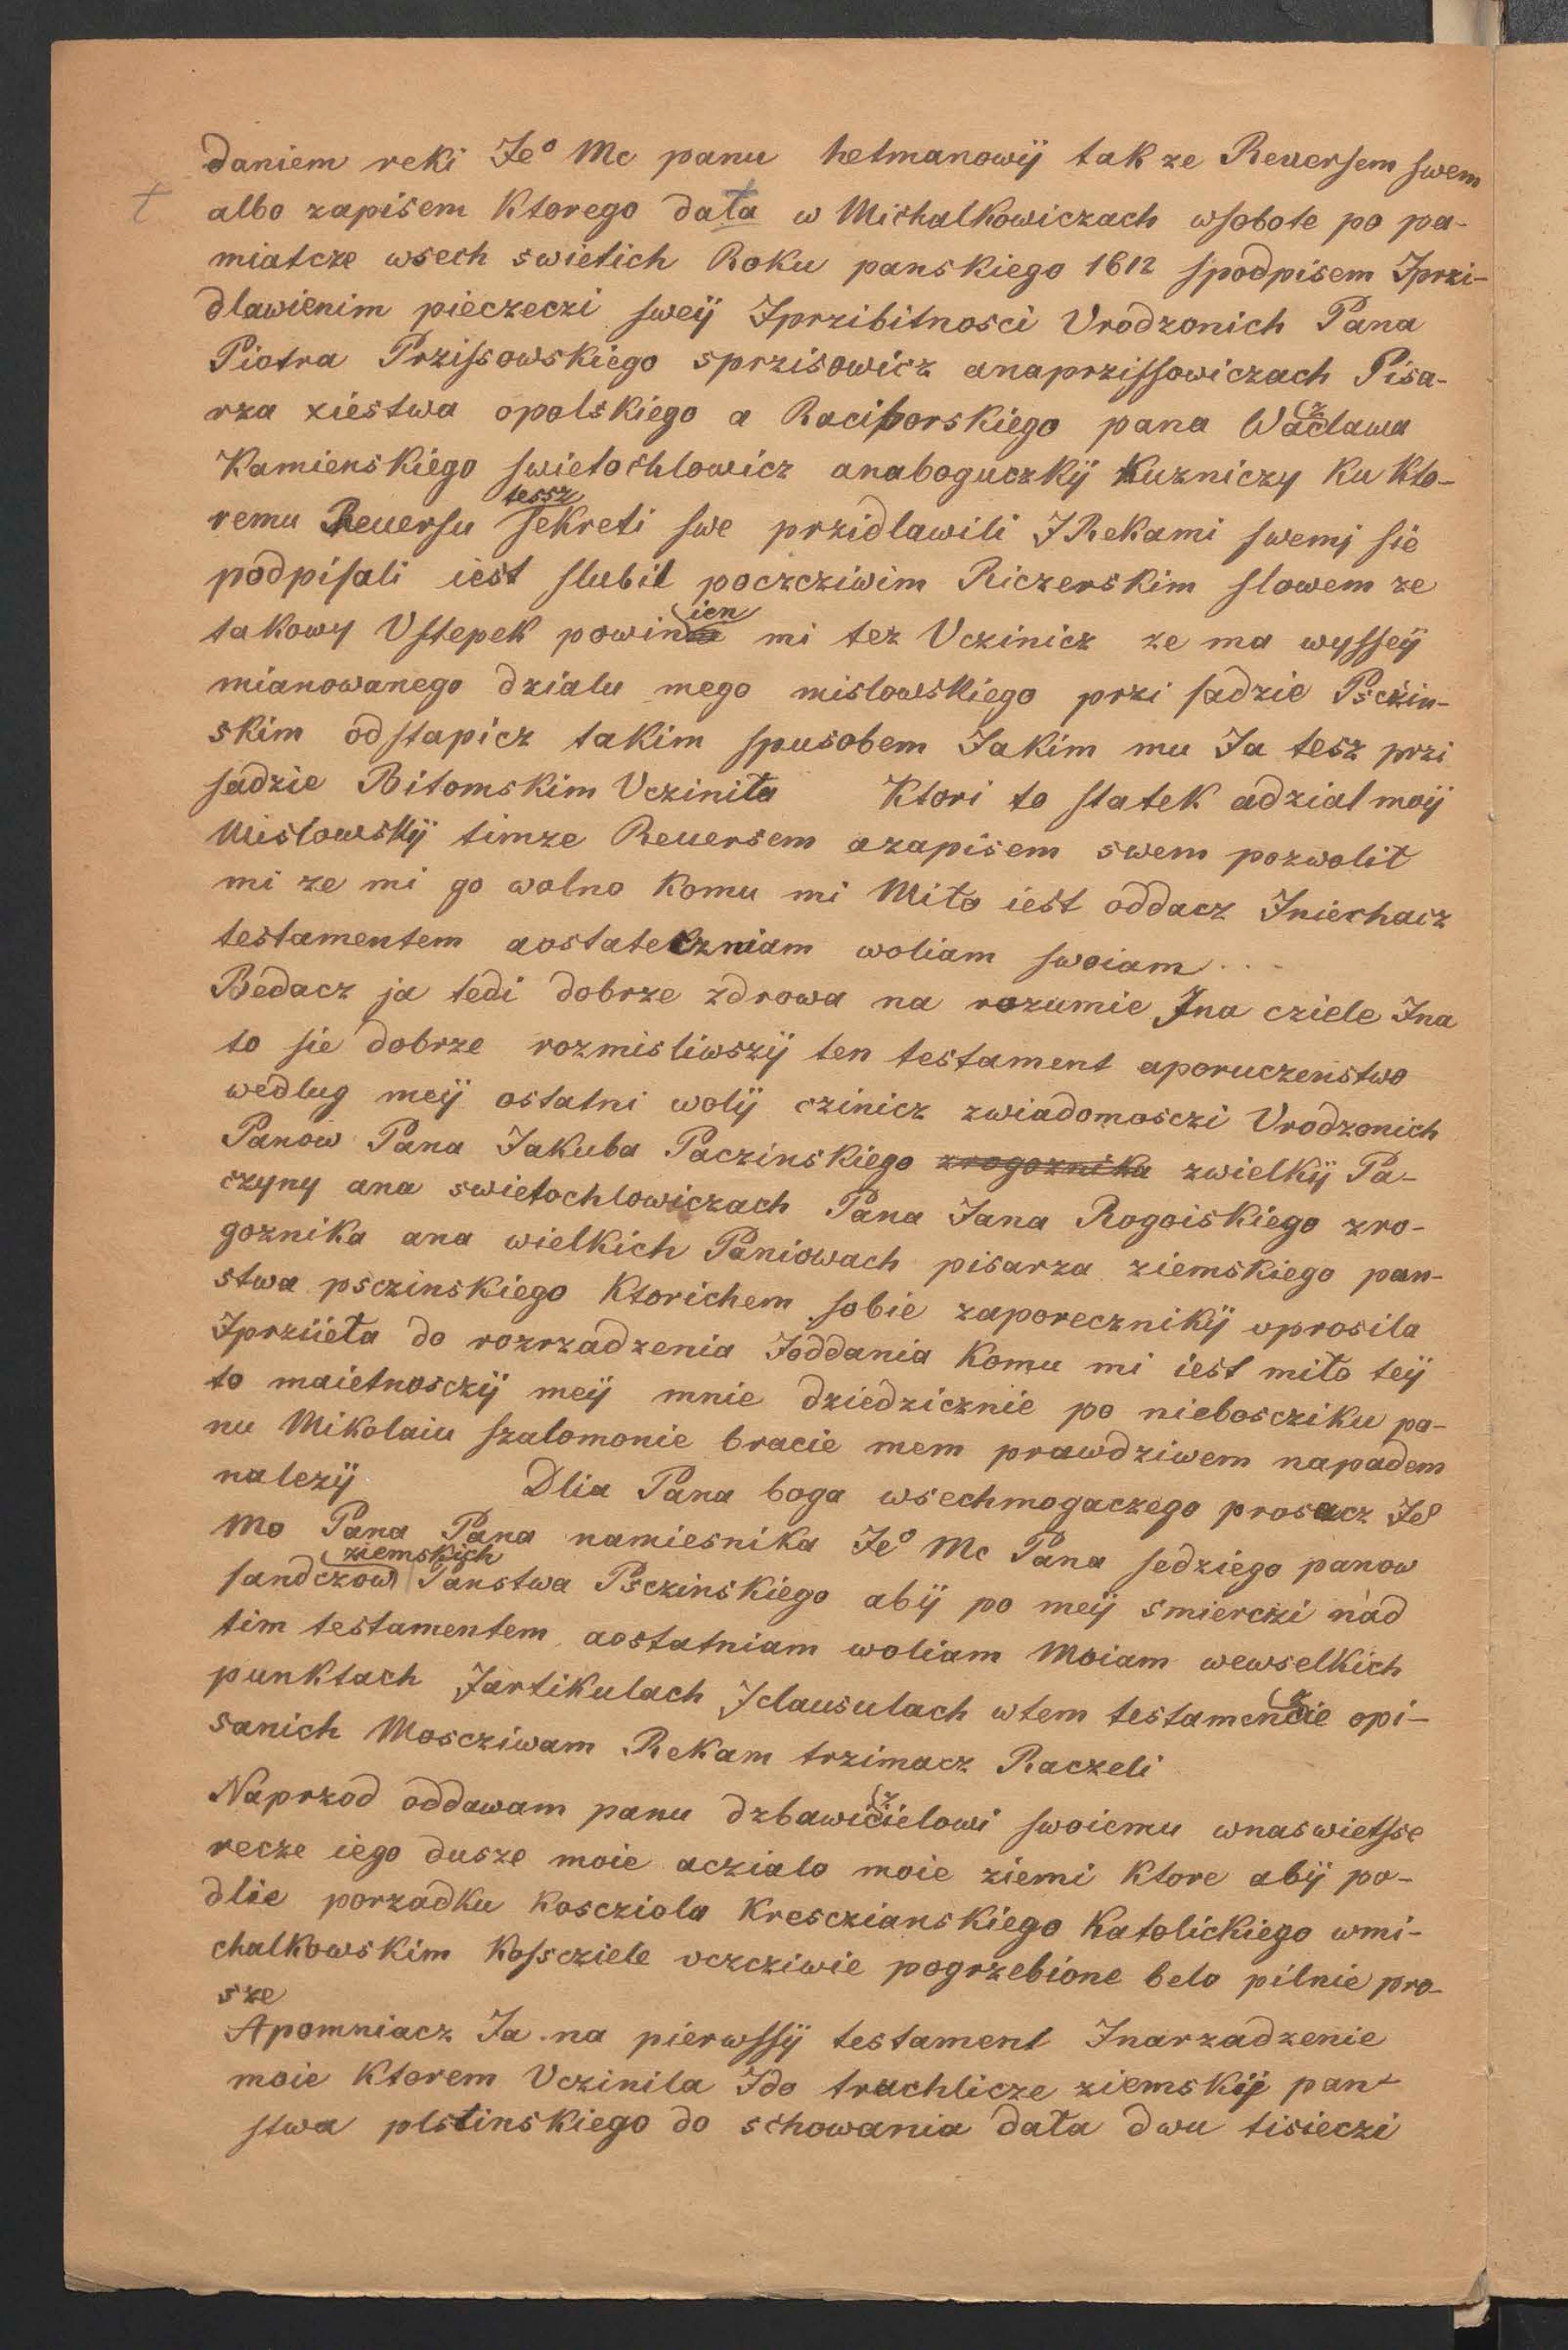 daniem reki Jeº Mc panu hetmanowÿ tak ze Reuersem swem
t albo zapisem Ktorego data w Michalkowiczach wsobote po pa-
miatcze wsech swietich Roku panskiego 1612 spodpisem Jprzi-
dlawienim pieczeczi sweÿ Jprzibitnosci Vrodzonich Pana
Piotra Przissowskiego sprzisowicz anaprzissowiczach Pisa-
rza xiestwa opolskiego a Raciborskiego pana Waczlawa
Kamienskiego swietochlowicz anaboguczkÿ Kuzniczy Ku Kto-
remu Reuersu tessz sekreti swe przidlawili J Rekami swemj sie
podpisali iest slubil poczcziwim Riczerskim slowem ze
takowy Vstepek powinien mi tez Vczinicz ze ma wysseÿ
mianowanego dzialu mego mislowskiego przi sadzie Psczin-
skim odstapicz takim spusobem Jakim mu Ja tesz przi
sadzie Bitomskim Vcziniła Ktori to statek adzial moÿ
Mislowskÿ timze Reuersem azapisem swem pozwolił
mi ze mi go wolno Komu mi Miło iest oddacz Jniechacz
testamentem aostateczniam woliam swoiam...
Bedacz ja tedi dobrze zdrowa na rozumie Jna cziele Jna
to sie dobrze rozmisliwszÿ ten testament aporuczenstwo
wedlug meÿ ostatni wolÿ czinicz zwiadomosczi Vrodzonich
Panow Pana Jakuba Paczinskiego zrogoznika zwielkÿ Pa-
czyny ana swietochlowiczach Pana Jana Rogoiskiego zro-
goznika ana wielkich Paniowach pisarza ziemskiego pan-
stwa psczinskiego Ktorichem sobie zaporecznikÿ vprosila
Jprziieła do rozrzadzenia Joddania Komu mi iest miło teÿ
to maietnosczÿ meÿ mnie dziedzicznie po niebościku pa-
nu Mikolaiu szalomonie bracie mem prawdziwem napadem
nalezÿ Dlia Pana boga wsechmogaczego prosacz Jeº
Mo Pana Pana namiesnika Jeº Mc Pana sedziego panow
sandczow ziemskich Panstwa Psczinskiego abÿ po meÿ smierczi nad
tim testamentem aostatniam woliam Moiam wewselkich
punktach Jartikulach Jclausulach wtem testamenczie opi-
sanich Moscziwam Rekam trzimacz Raczeli
Naprzod oddawam panu dzbawiczielowi swoiemu wnaswietsse
recze iego dusze moie aczialo moie ziemi Ktore abÿ po-
dlie porzadku Koscziola Kresczianskiego Katolickiego wmi-
chalkowskim Kossczie­le vczcziwie pogrzebione belo pilnie pro-
sze
Apomniacz Ja na pierwssÿ testament Jnarzadzenie
moie Ktorem Vczinila Jdo truchlicze ziemskÿ pan-
stwa plstinskiego do schowania dała dwu tisieczi